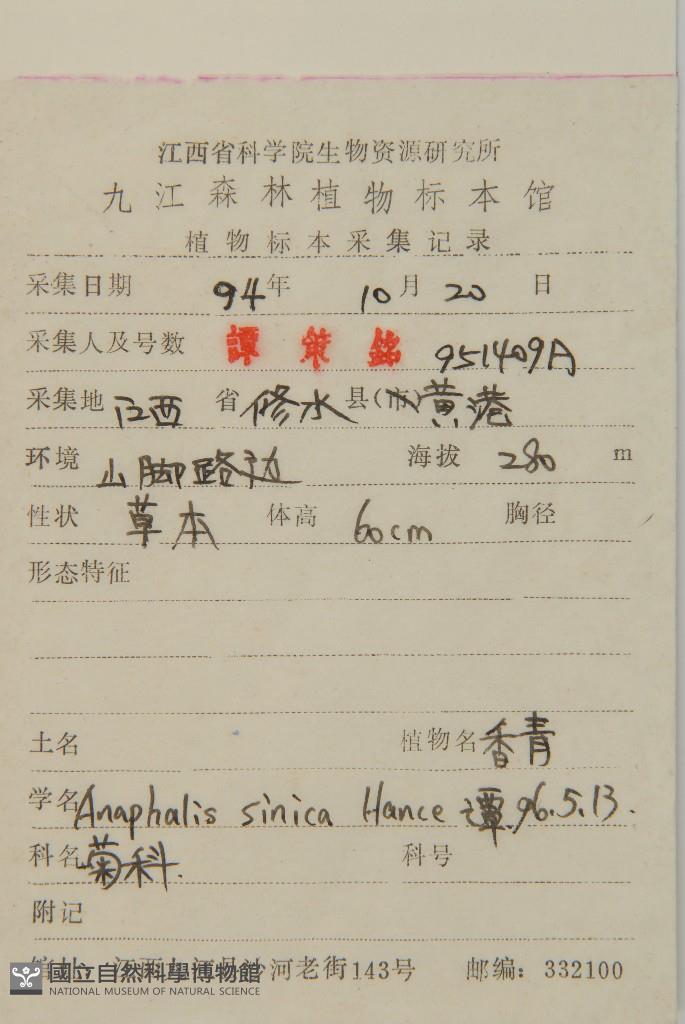 江西省科学院生物资源研究所
九江森林植物标本馆
植物标本采集记录
采集日期 94年 10月 20 日
采集人及号数 譚策銘 951409A
采集地 江西 省 修水 县(市) 黄港
环境 山脚路边 海拔 280 m
性状 草本 体高 60cm 胸径
形态特征
土名 植物名 香青
学名 Anaphalis sinica Hance 谭.96.5.13.
科名 菊科. 科号
附记
馆址: 江西九江县沙河老街143号 邮编: 332100
國立自然科學博物館
NATIONAL MUSEUM OF NATURAL SCIENCE